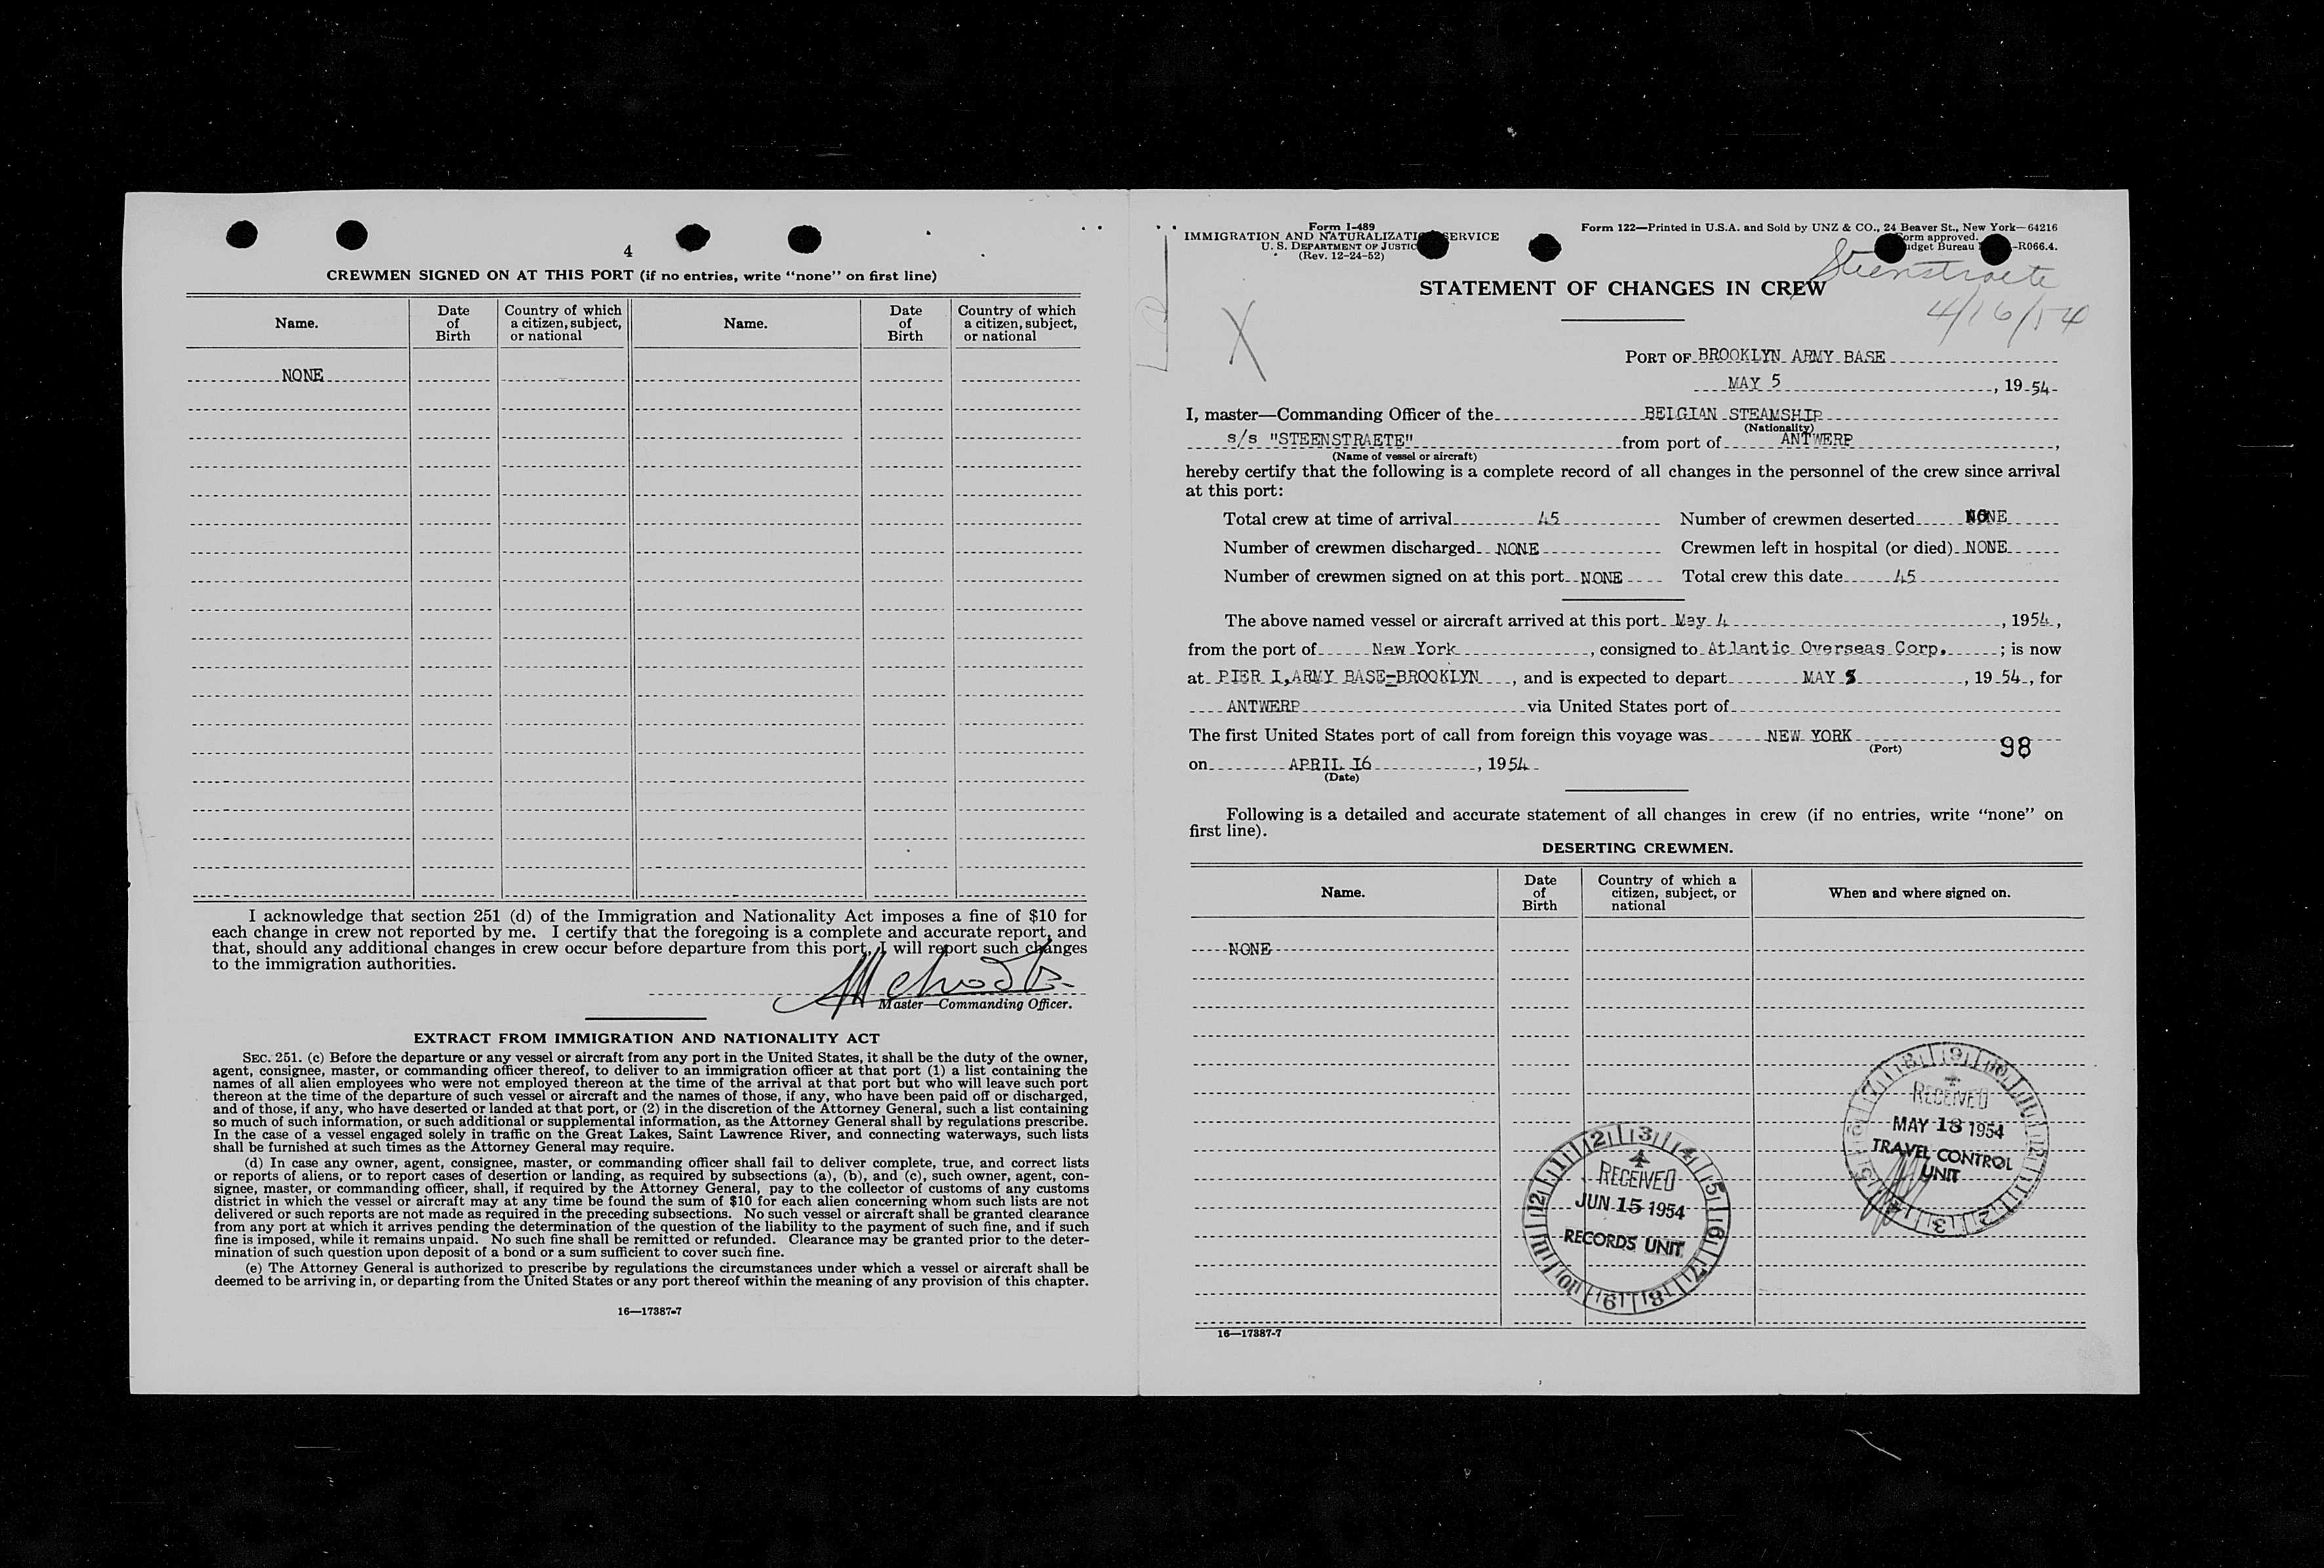 4
CREWMEN SIGNED ON AT THIS PORT (if no entries, write “none” on first line)
Name. Date of Birth Country of which a citizen, subject, or national Name. Date of Birth Country of which a citizen, subject, or national
NONE
I acknowledge that section 251 (d) of the Immigration and Nationality Act imposes a fine of $10 for
each change in crew not reported by me. I certify that the foregoing is a complete and accurate report, and
that, should any additional changes in crew occur before departure from this port, I will report such changes
to the immigration authorities.
Master—Commanding Officer.
EXTRACT FROM IMMIGRATION AND NATIONALITY ACT
SEC. 251. (c) Before the departure or any vessel or aircraft from any port in the United States, it shall be the duty of the owner,
agent, consignee, master, or commanding officer thereof, to deliver to an immigration officer at that port (1) a list containing the
names of all alien employees who were not employed thereon at the time of the arrival at that port but who will leave such port
thereon at the time of the departure of such vessel or aircraft and the names of those, if any, who have been paid off or discharged,
and of those, if any, who have deserted or landed at that port, or (2) in the discretion of the Attorney General, such a list containing
so much of such information, or such additional or supplemental information, as the Attorney General shall by regulations prescribe.
In the case of a vessel engaged solely in traffic on the Great Lakes, Saint Lawrence River, and connecting waterways, such lists
shall be furnished at such times as the Attorney General may require.
(d) In case any owner, agent, consignee, master, or commanding officer shall fail to deliver complete, true, and correct lists
or reports of aliens, or to report cases of desertion or landing, as required by subsections (a), (b), and (c), such owner, agent, con-
signee, master, or commanding officer, shall, if required by the Attorney General, pay to the collector of customs of any customs
district in which the vessel or aircraft may at any time be found the sum of $10 for each alien concerning whom such lists are not
delivered or such reports are not made as required in the preceding subsections. No such vessel or aircraft shall be granted clearance
from any port at which it arrives pending the determination of the question of the liability to the payment of such fine, and if such
fine is imposed, while it remains unpaid. No such fine shall be remitted or refunded. Clearance may be granted prior to the deter-
mination of such question upon deposit of a bond or a sum sufficient to cover such fine.
(e) The Attorney General is authorized to prescribe by regulations the circumstances under which a vessel or aircraft shall be
deemed to be arriving in, or departing from the United States or any port thereof within the meaning of any provision of this chapter.
16—17387-7
Form I-489
IMMIGRATION AND NATURALIZATION SERVICE
U. S. DEPARTMENT OF JUSTICE
(Rev. 12-24-52)
Form 122—Printed in U.S.A. and Sold by UNZ & CO., 24 Beaver St., New York—64216
Form approved.
Budget Bureau -R066.4.
Steenstraete
4/16/54
X
STATEMENT OF CHANGES IN CREW
PORT OF BROOKLYN ARMY BASE
MAY 5, 19 54
I, master—Commanding Officer of the BELGIAN STEAMSHIP
(Nationality)
s/s "STEENSTRAETE" from port of ANTWERP,
(Name of vessel or aircraft)
hereby certify that the following is a complete record of all changes in the personnel of the crew since arrival
at this port:
Total crew at time of arrival 45 Number of crewmen deserted NONE
Number of crewmen discharged NONE Crewmen left in hospital (or died) NONE
Number of crewmen signed on at this port NONE Total crew this date 45
The above named vessel or aircraft arrived at this port May 4, 1954,
from the port of New York, consigned to Atlantic Overseas Corp.; is now
at PIER I, ARMY BASE-BROOKLYN, and is expected to depart MAY 5, 19 54, for
ANTWERP via United States port of
The first United States port of call from foreign this voyage was NEW YORK
(Port)
98
on APRIL 16, 1954
(Date)
Following is a detailed and accurate statement of all changes in crew (if no entries, write “none” on
first line).
DESERTING CREWMEN.
Name. Date of Birth Country of which a citizen, subject, or national When and where signed on.
NONE
RECEIVED
MAY 18 1954
TRAVEL CONTROL
UNIT
RECEIVED
JUN 15 1954
RECORDS UNIT
16—17387-7